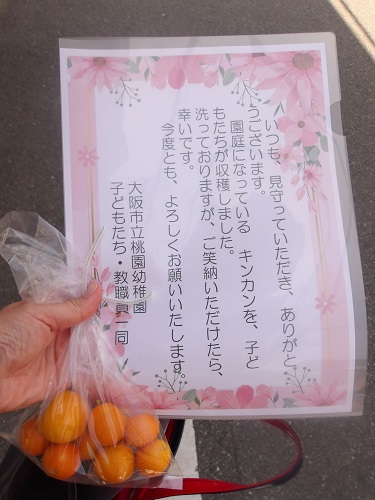 いつも、見守っていただき、ありがと
うございます。
園庭になっている　キンカンを、子ど
もたちが収穫しました。
洗っておりますが、ご笑納いただけたら、
幸いです。
今度とも、よろしくお願いいたします。
大阪市立桃園幼稚園
子どもたち・教職員一同